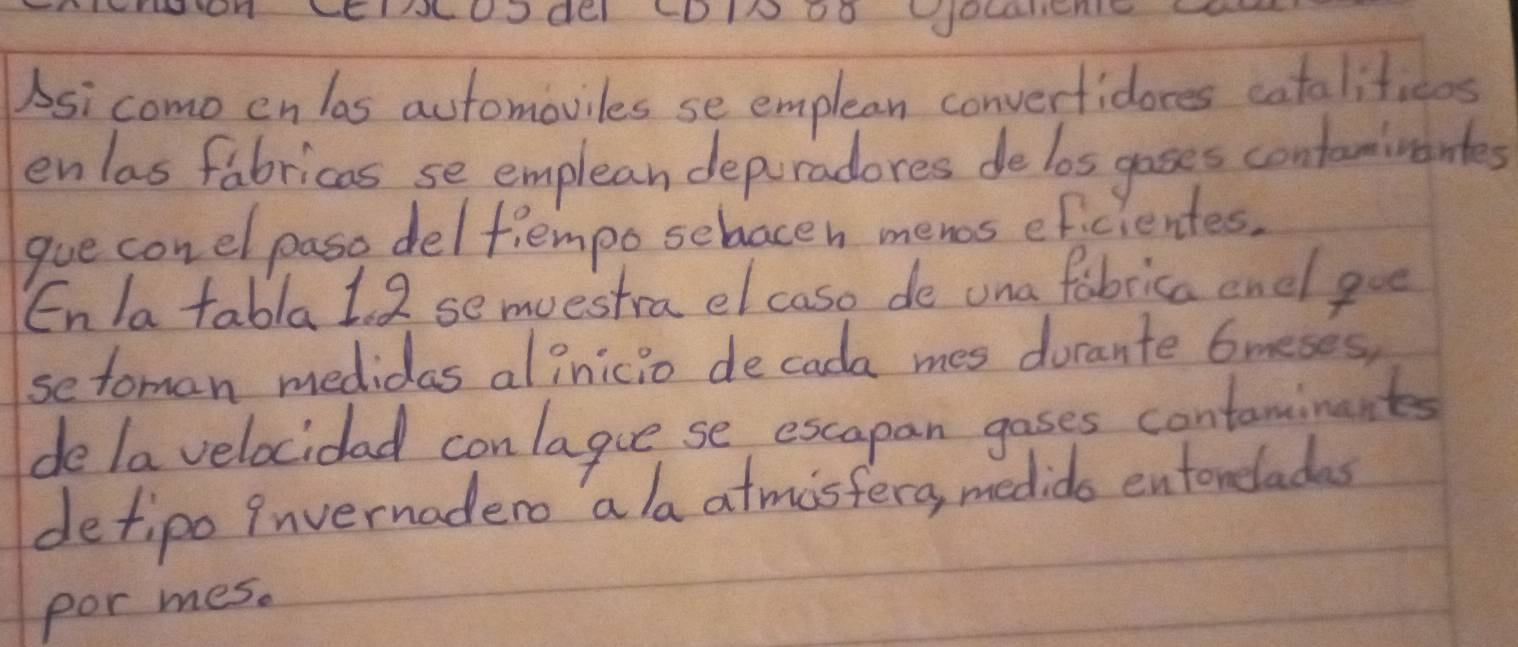 del CBTis 88 Ojocaliente
Asi como en los automóviles se emplean convertidores cataliticos
en las fábricas se emplean depuradores de los gases contaminantes
que con el paso del tiempo se hacen menos eficientes.
En la tabla 1.2 se muestra el caso de una fábrica en el que
se toman medidas al inicio de cada mes durante 6 meses,
de la velocidad con la que se escapan gases contaminantes
de tipo invernadero a la atmósfera, medida en toneladas
por mes.